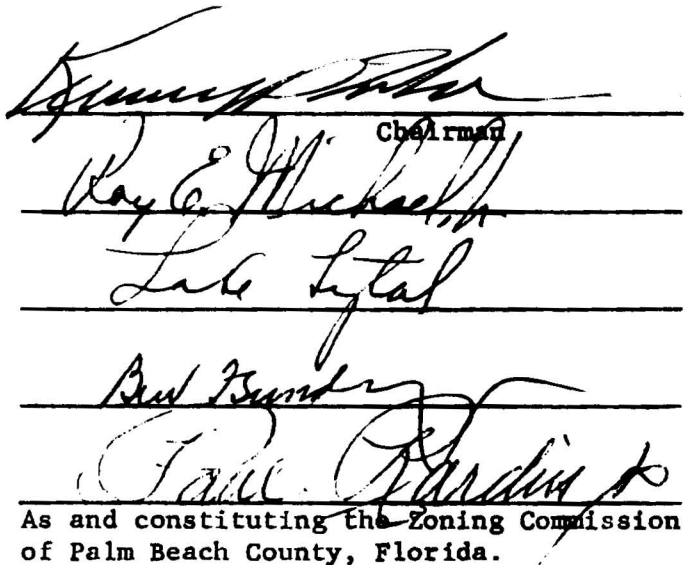 Chairman
Roy E. Michael, Jr
Lake Lytal
Bud
Paul Hardin Jr
As and constituting the Zoning Commission
of Palm Beach County, Florida.